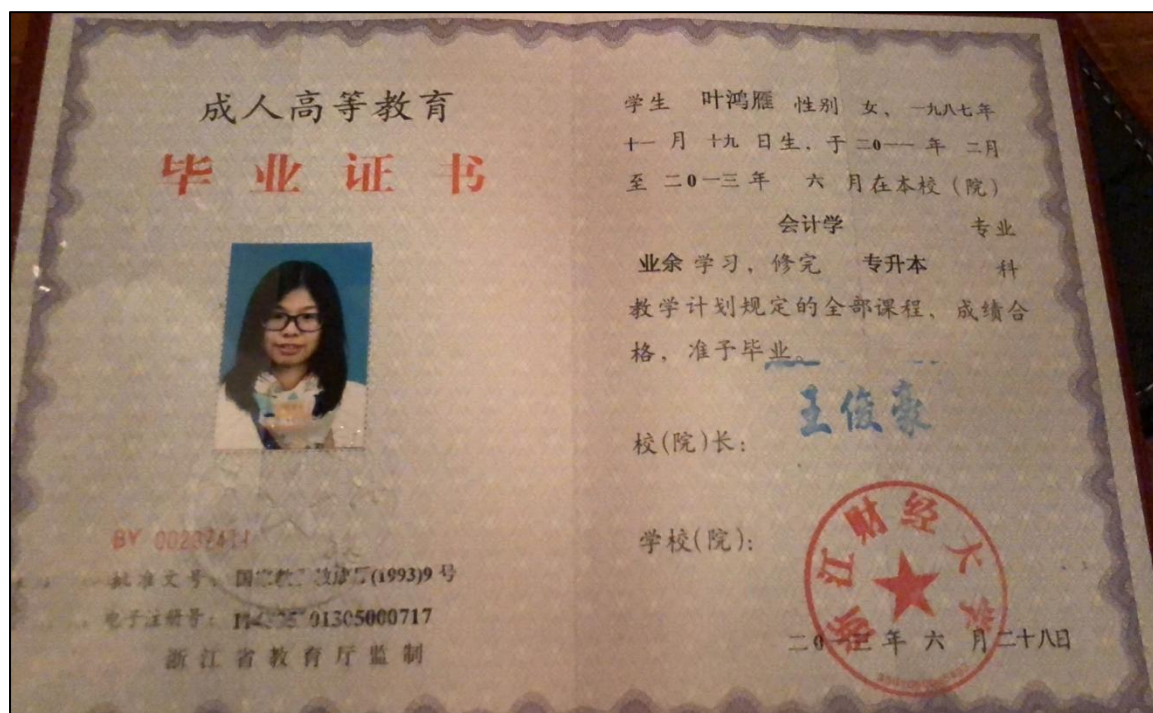 成人高等教育
毕业证书
批准文号：国家教 (1993)9 号
电子注册号： 01305000717
浙江省教育厅监制
学生 叶鸿雁 性别 女、一九八七年
十一 月 十九 日生，于 二0一一 年 二月
至 二0一三 年 六 月在本校（院）
会计学 专业
业余 学习，修完 专升本 科
教学计划规定的全部课程，成绩合
格，准予毕业。
王俊豪
校(院)长：
学校(院)：
浙江财经大学
二0一三 年 六 月二十八日